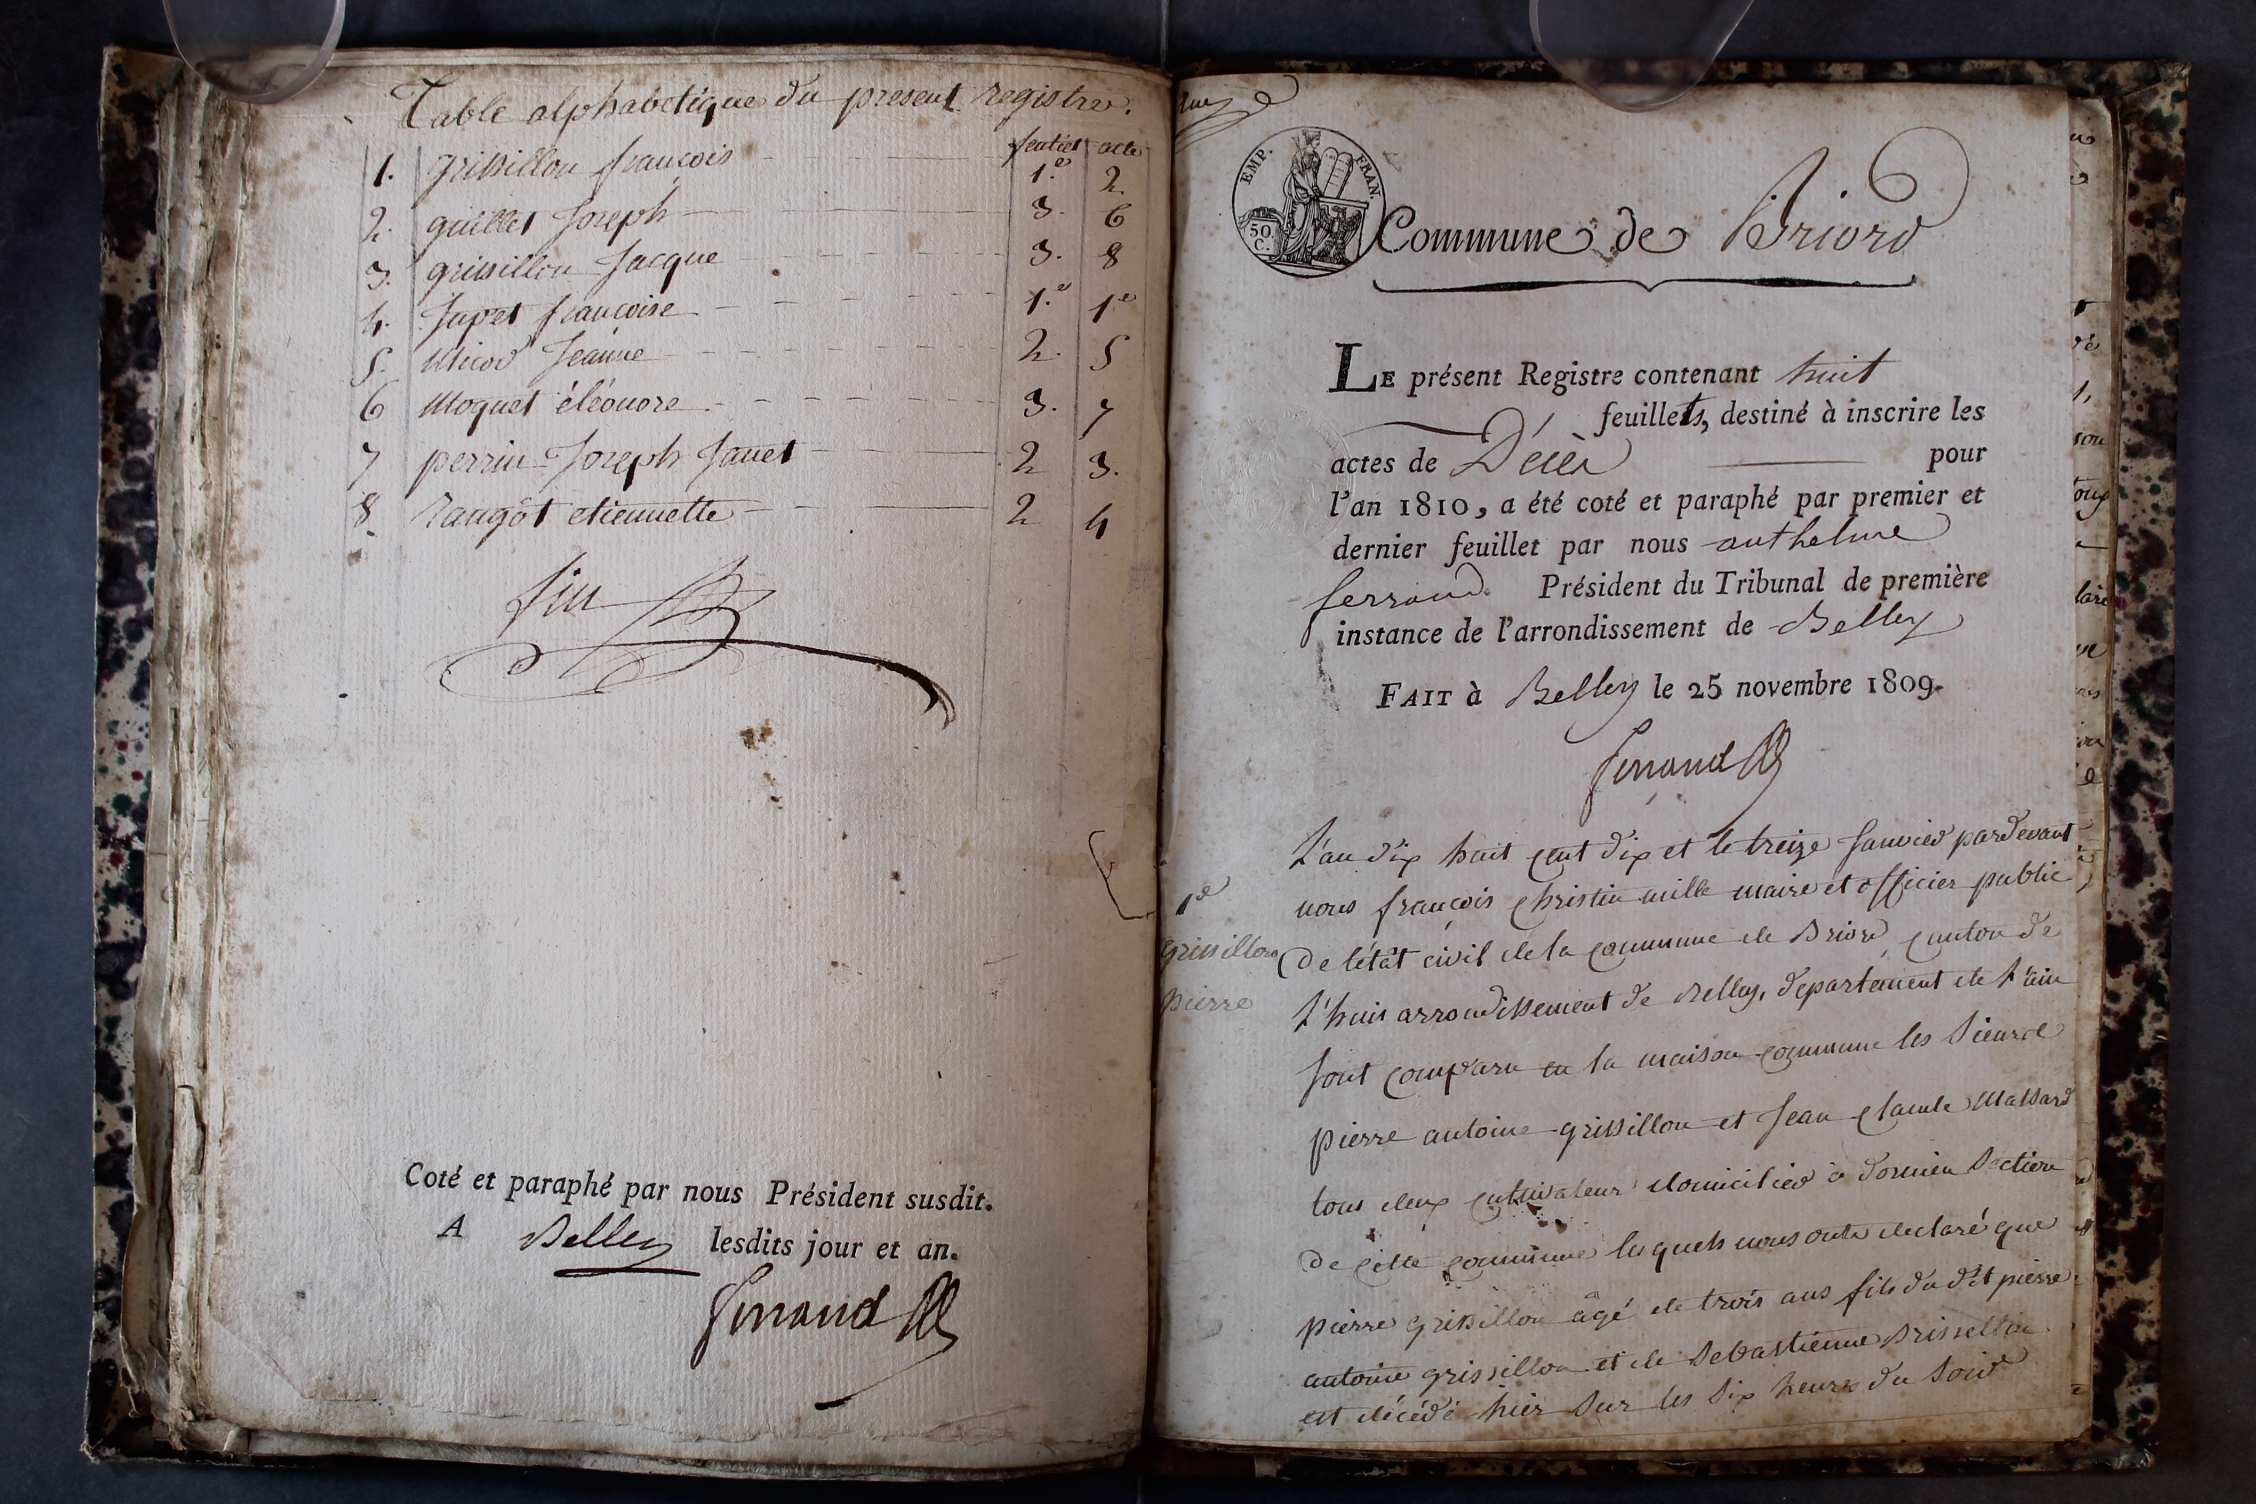 Table alphabetique du present registre.
feuillet acte
1. grissillon françois 1.e 2
2. guillet Joseph 3. 6
3. grissillon Jacque 3. 8
4. Japet francoise 1.e 1e
5. Micod Jeanne 2. 5
6 Moquet éléonore 3. 7
7 perrin Joseph Janet 2 3.
8 rangot etiennette 2 4
fin
Coté et paraphé par nous Président susdit.
A Belley lesdits jour et an.
ferrand
EMP. FRAN.
50 C.
Commune de Briord
Le présent Registre contenant huit
feuillets, destiné à inscrire les
actes de Décès pour
l'an 1810, a été coté et paraphé par premier et
dernier feuillet par nous anthelme
ferrand. Président du Tribunal de première
instance de l'arrondissement de Belley
Fait à Belley le 25 novembre 1809.
ferrand
1e
grissillon
pierre
L'an dix huit cent dix et le treize Janvier pardevant
nous françois christin mille maire et officier public
De l'état civil de la commune de Briord, canton de
L'huis arrondissement de Belley, departement de L'ain
sont comparu en la maison commune les sieurs
pierre antoine grissillon et Jean claude Massard
tous deux cultivateur domicilies à dornieu section
de cette commune lesquels nous onts declaré que
pierre grissillon âgé de trois ans fils du dit pierre
antoine grissillon et de Sebastienne
est décédé hier sur les six heures du soir